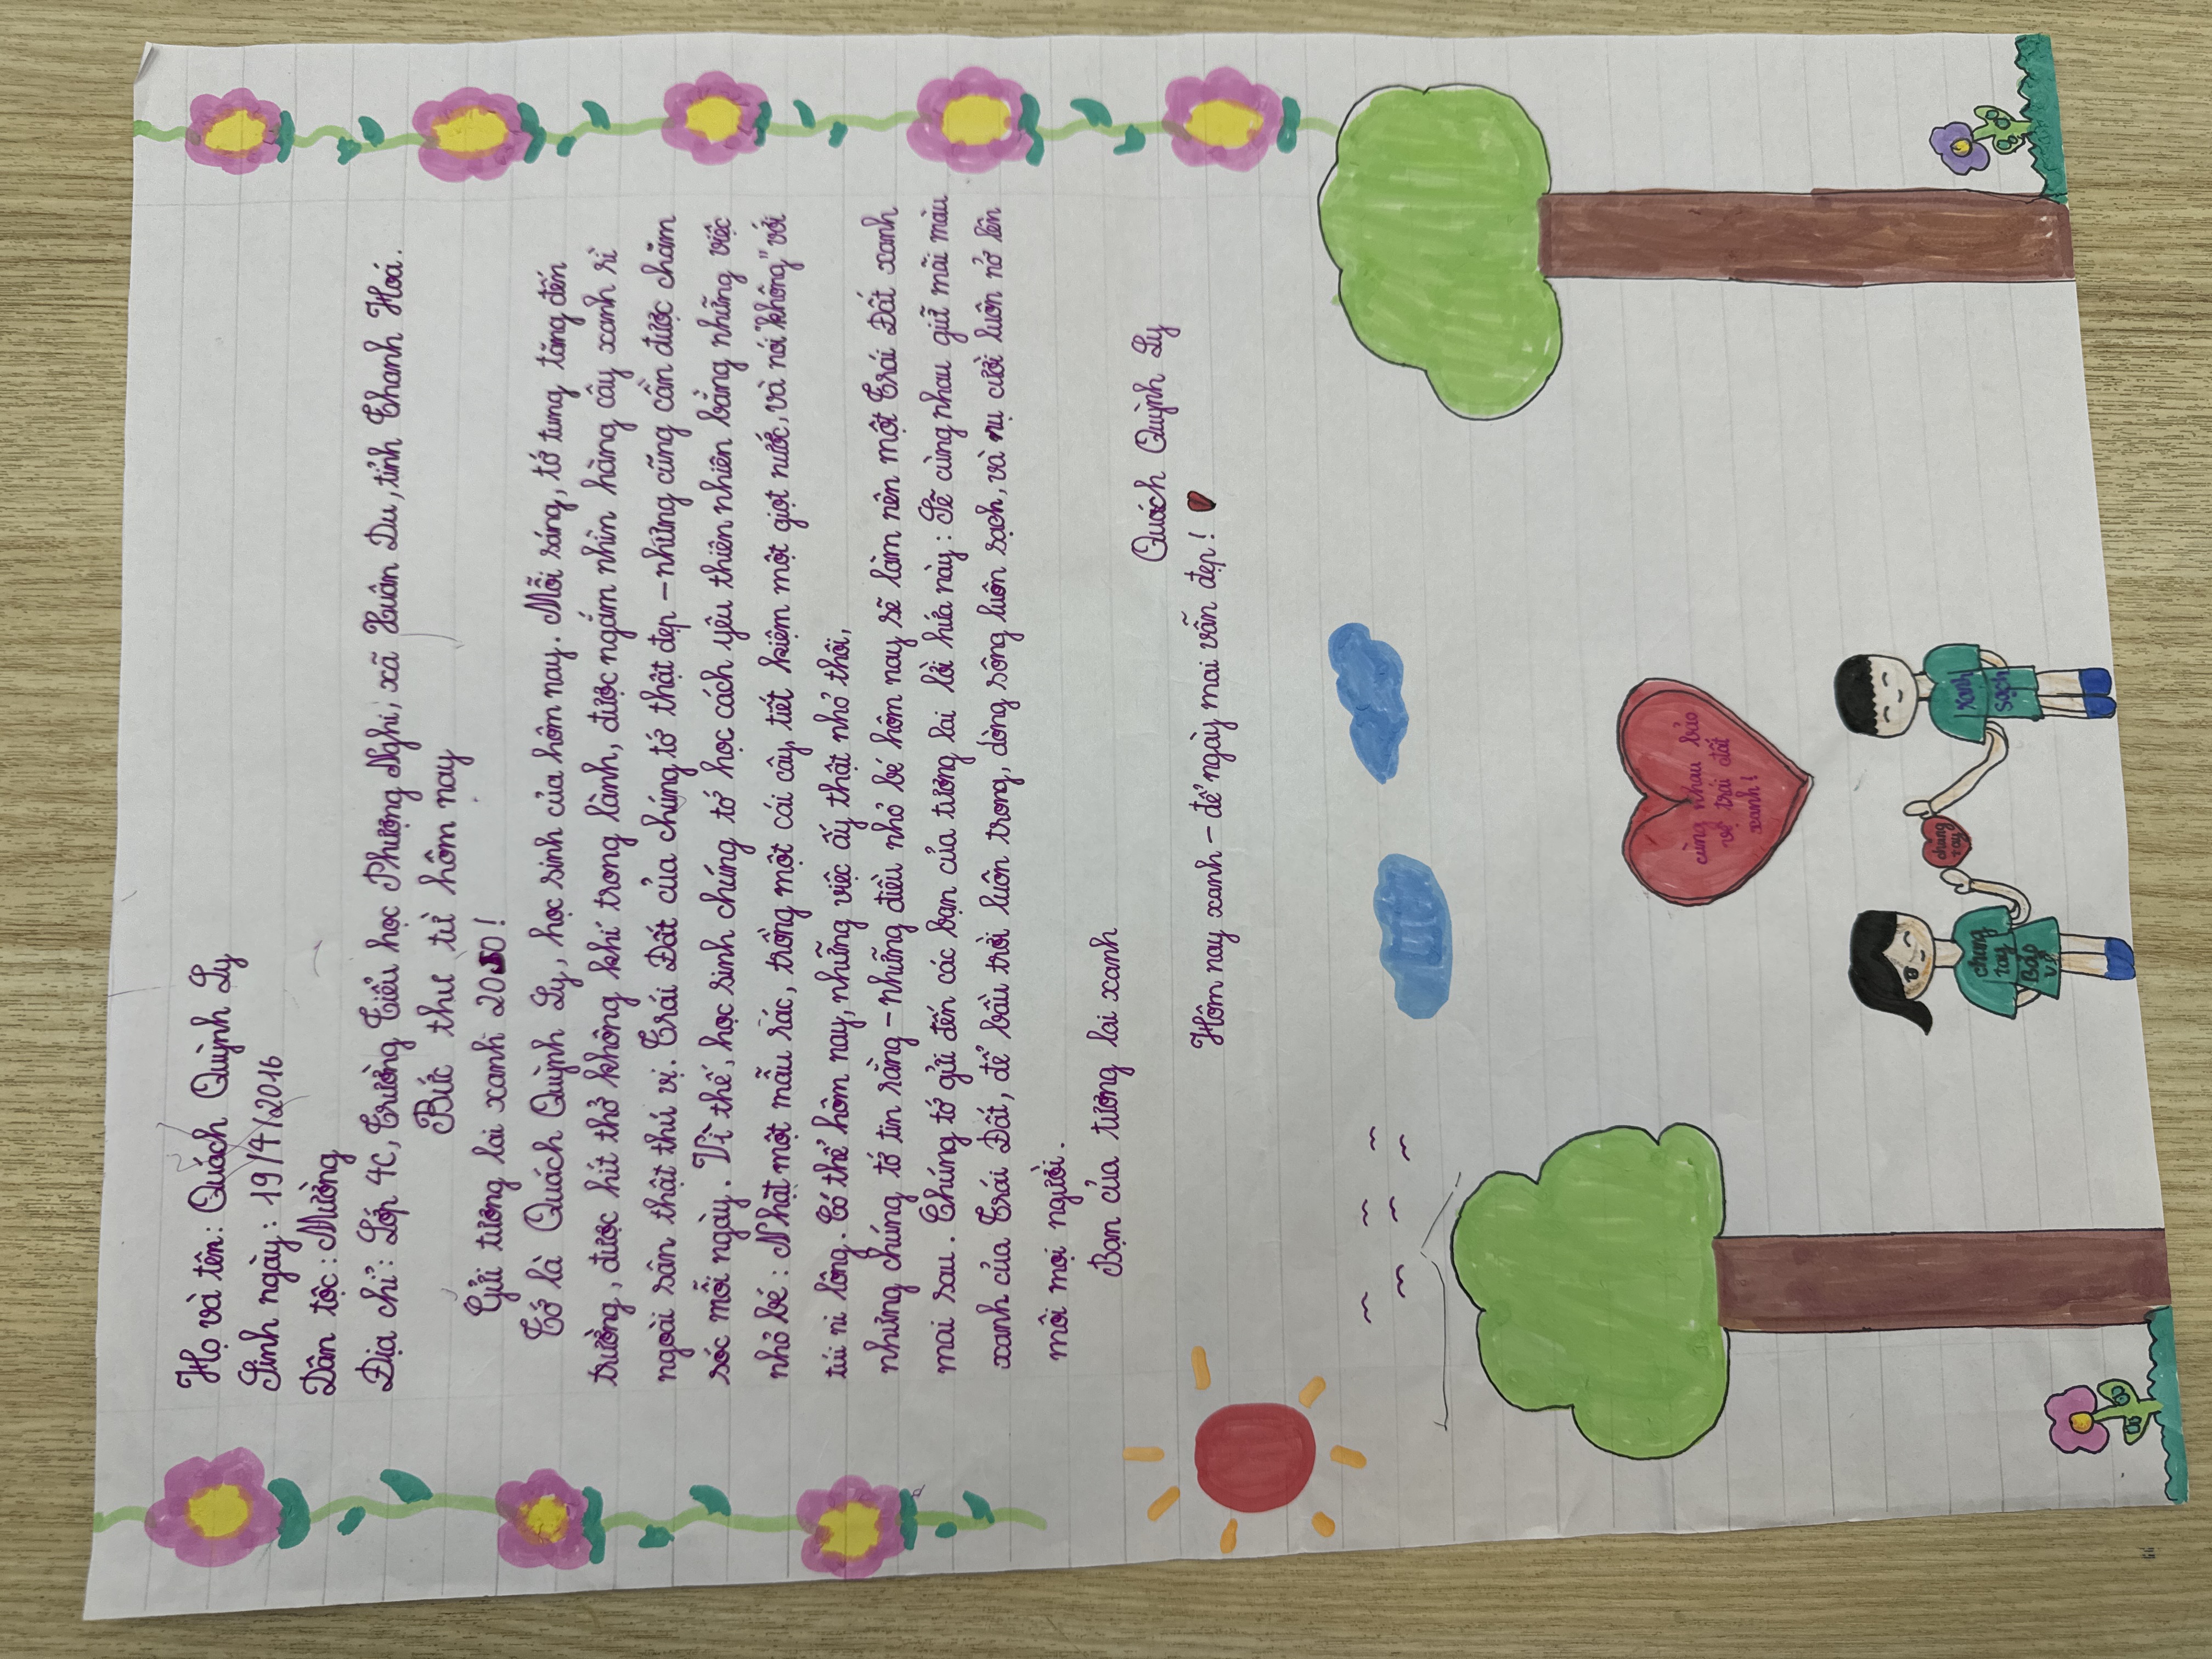 Họ và tên: Quách Quỳnh Ly
Sinh ngày: 19/4/2016
Dân tộc: Mường
Địa chỉ: Lớp 4C, Trường Tiểu học Phượng Nghi, xã Xuân Du, tỉnh Thanh Hoá.
Bức thư từ hôm nay
Gửi tương lai xanh 2050!
Tớ là Quách Quỳnh Ly, học sinh của hôm nay. Mỗi sáng, tớ tung tăng đến
trường, được hít thở không khí trong lành, được ngắm nhìn hàng cây xanh rì
ngoài sân thật thú vị. Trái Đất của chúng tớ thật đẹp – nhưng cũng cần được chăm
sóc mỗi ngày. Vì thế, học sinh chúng tớ học cách yêu thiên nhiên bằng những việc
nhỏ bé: Nhặt một mẫu rác, trồng một cái cây, tiết kiệm một giọt nước, và nói "không" với
túi ni lông. Có thể hôm nay, những việc ấy thật nhỏ thôi,
nhưng chúng tớ tin rằng – những điều nhỏ bé hôm nay sẽ làm nên một Trái Đất xanh
mai sau. Chúng tớ gửi đến các bạn của tương lai lời hứa này: Sẽ cùng nhau giữ mãi màu
xanh của Trái Đất, để bầu trời luôn trong, dòng sông luôn sạch, và nụ cười luôn nở trên
môi mọi người.
Bạn của tương lai xanh
Quách Quỳnh Ly
Hôm nay xanh – để ngày mai vẫn đẹp!
cùng nhau bảo
vệ trái đất
xanh!
chung
tay
chung
tay
Bảo
vệ
xanh
sạch